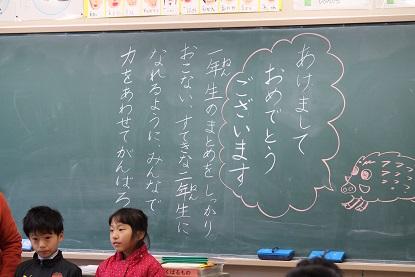 あけまして
おめでとう
ございます
一年生のまとめをしっかり
ねん
おこない、すてきな二年生に
ねん
なれるように、みんなで
力をあわせてがんばろ
くばるもの